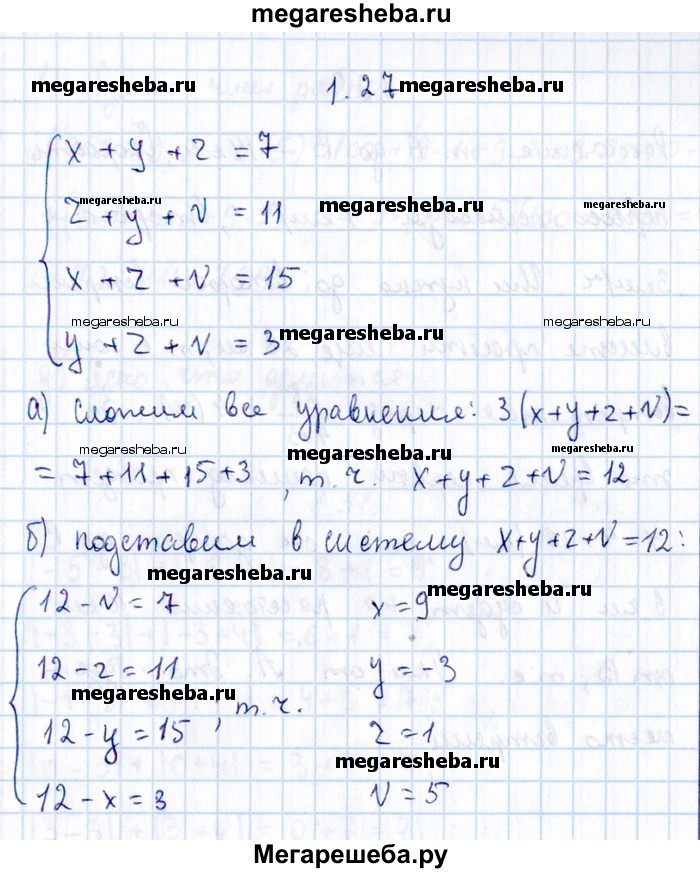 megaresheba.ru
megaresheba.ru 1.27 megaresheba.ru
x + y + z = 7
megaresheba.ru megaresheba.ru megaresheba.ru
z + y + v = 11
x + z + v = 15
megaresheba.ru megaresheba.ru megaresheba.ru
y + z + v = 3
а) сложим все уравнения: 3(x+y+z+v)=
megaresheba.ru megaresheba.ru megaresheba.ru
= 7+11+15+3, т. ч. x+y+z+v=12
б) подставим в систему x+y+z+v=12:
megaresheba.ru megaresheba.ru
12-v=7 x=9
12-z=11 y=-3
megaresheba.ru , т. ч.
12-y=15 z=1
megaresheba.ru
12-x=3 v=5
Мегарешеба.ру